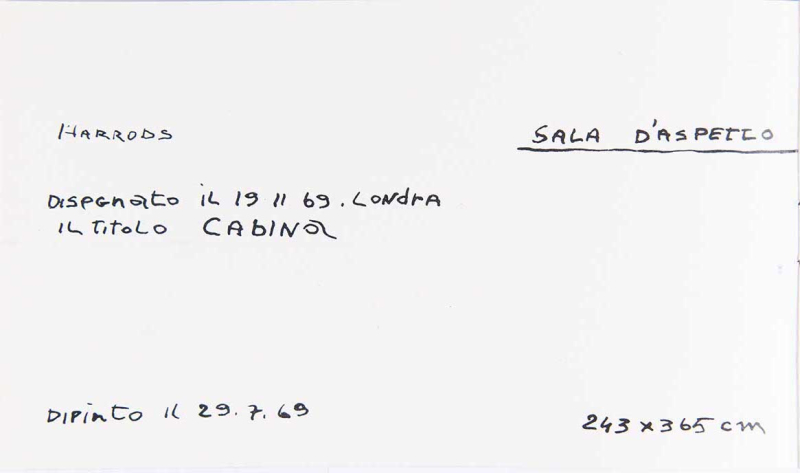 HARRODS
SALA D'ASPETTO
DISEGNATO IL 19 11 69. LONDRA
IL TITOLO CABINA
DIPINTO IL 29.7.69
243 x 365 cm